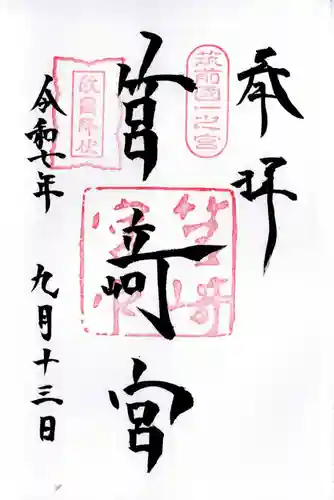 奉拝
筑前國一之宮
筥崎宮
敵國降伏
筥崎宮印
令和七年 九月十三日